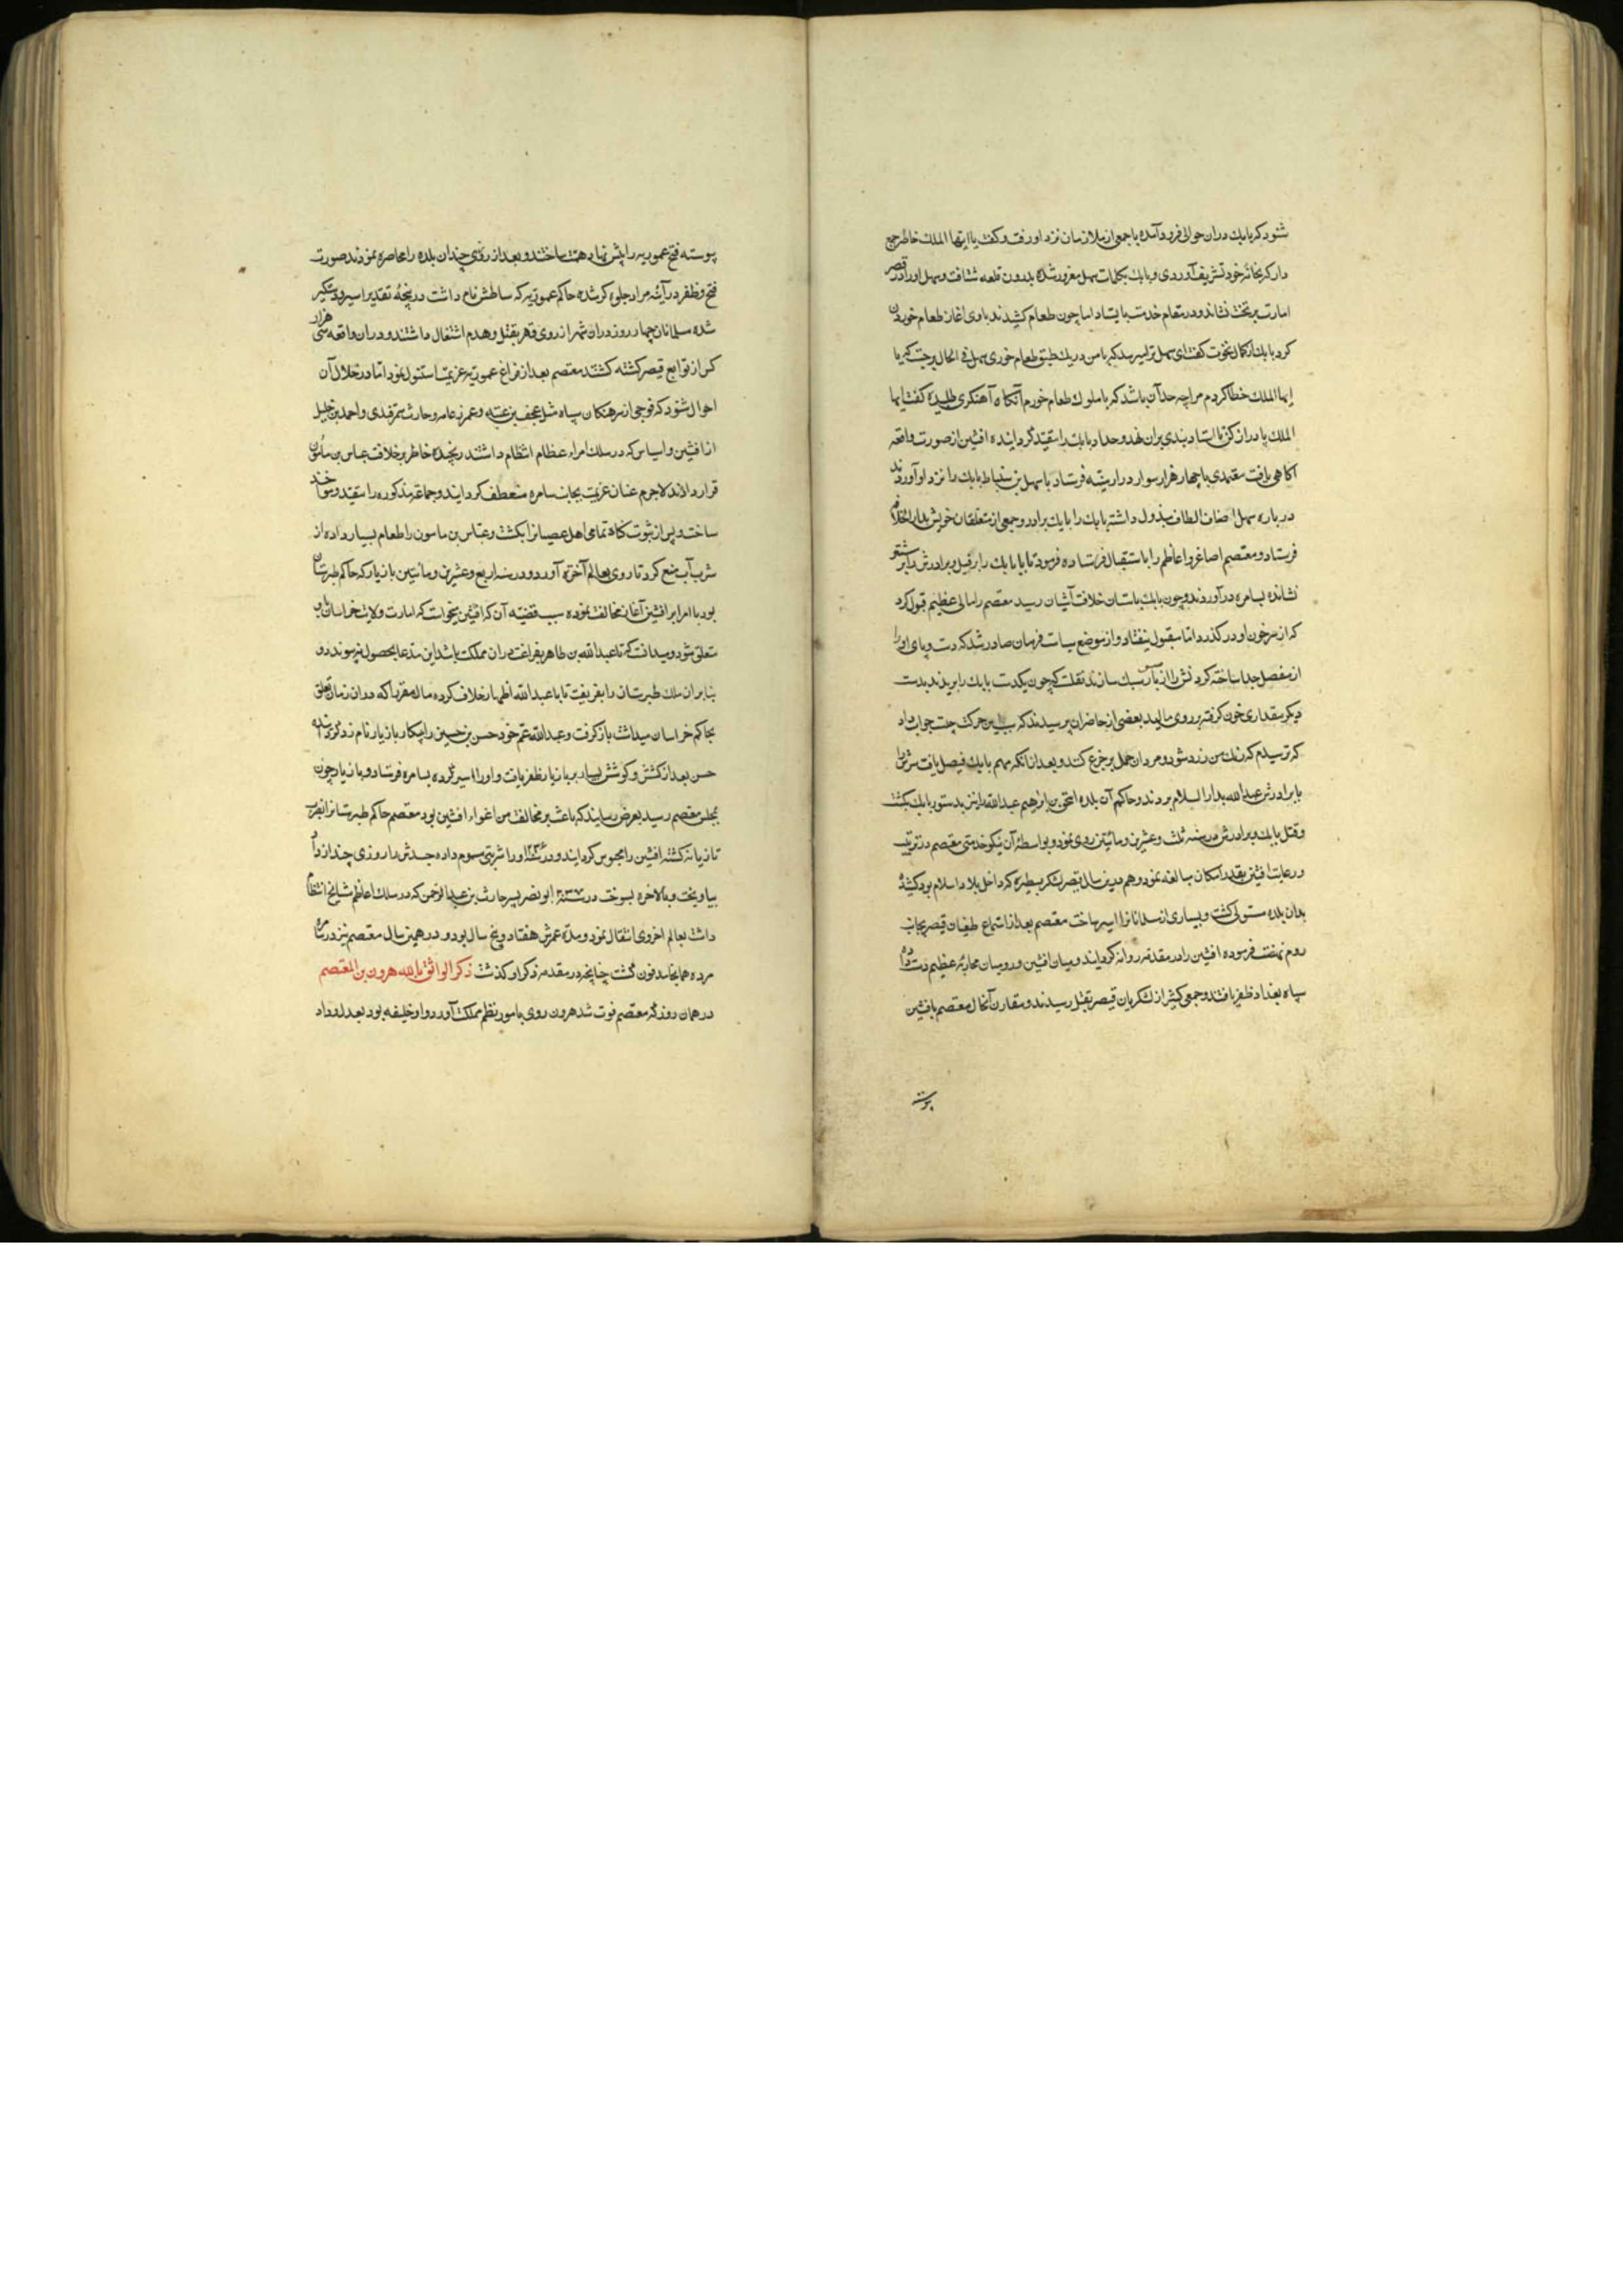 شنود که بابک دران حوالی فرود آمده با جمعی از ملازمان نزد او رفت و گفت یا ایها الملک خاطر جمع
دار که بخانهٔ خود تشریف آوردی و بابک بکلمات سهل مغرور شده بدرون قلعه شتافت و سهل او را در قصر
امارت بر تخت نشاند و در مقام خدمت بایستاد اما چون طعام کشیدند با وی آغاز طعام خوردن
کرد بابک از کمال نخوت گفت ای سهل ترا میرسد که با من در یک طبق طعام خوری سهل فی الحال برجست که یا
ایها الملک خطا کردم مرا چه حد آن باشد که با ملوک طعام خورم آنگاه آهنگری طلبیده گفت ایها
الملک پا دراز کن تا استاد بندی بران نهد و حداد بابک را مقید گردانیده افشین از صورت واقعه
آگاهی یافت معتمدی با چهار هزار سوار در ارمنیه فرستاد تا سهل بن سنباط بابک را نزد او آوردند
در باره سهل اصناف الطاف مبذول داشته بابک را با یک برادر و جمعی از متعلقان خویش بدار الخلافه
فرستاد و معتصم اصاغر و اعاظم را باستقبال فرستاده فرمود تا بابک را بر فیل و برادرش را بر شتر
نشانده بسامره در آوردند و چون بابک باستان خلافت آشیان رسید معتصم را مالی عظیم قبول کرد
که از سر خون او در گذرد اما مقبول نیفتاد و از موضع سیاست فرمان صادر شد که دست و پای او را
از مفصل جدا ساخته گردنش را از بار سر سبک سازند نقلست که چون یکدست بابک را بریدند بدست
دیگر مقداری خون گرفته بر روی مالید بعضی از حاضران پرسیدند که سبب این حرکت چیست جواب داد
که ترسیدم که رنگ من زرد شود و مردمان حمل بر جزع کنند و بعد از انکه مهم بابک فیصل یافت سرش را
با برادرش عبدالله بدار السلام بردند و حاکم آن بلده اسحق بن ابراهیم عبدالله را نیز بدستور بابک بکشت
و قتل بابک و برادرش در سنه ثلث و عشرین و مائتین روی نمود و بواسطهٔ آن نیکو خدمتی معتصم در تربیت
و رعایت افشین بقدر امکان مبالغه نمود و هم درین سال قیصر لشکر بسیطره که داخل بلاد اسلام بود کشیده
بدان بلده مستولی گشت و بسیاری از مسلمانان را اسیر ساخت معتصم بعد از استماع طغیان قیصر بجانب
روم نهضت فرموده افشین را در مقدمه روانه گردانید و میان افشین و رومیان محاربهٔ عظیم دست داده
سپاه بغداد ظفر یافتند و جمعی کثیر از لشکریان قیصر بقتل رسیدند و مقارن آنحال معتصم بافشین
پیوسته
پیوسته فتح عموریه را پیش نهاد همت ساختند و بعد از روزی چند ان بلده را محاصره نمودند صورت
فتح و ظفر در آینهٔ مراد جلوه گر شده حاکم عموریه که ساطش نام داشت در پنجهٔ تقدیر اسیر و دستگیر
شده مسلمانان چهار روز دران شهر از روی قهر بقتل و هدم اشتغال داشتند و دران واقعه سی هزار
کس از توابع قیصر کشته گشتند معتصم بعد از فراغ عموریه عزیمت استنبول نمود اما در خلال آن
احوال شنود که فوجی از سرهنگان سپاه مثل عجیف بن عنبسه و عمر فرعامه و حارث سمرقندی و احمد بن خلیل
از افشین و اسیاس که در سلک امراء عظام انتظام داشتند رنجیده خاطر بر خلافت عباس بن مأمون
قرار دادند لاجرم عنان عزیمت بجانب سامره منعطف گردانید و جماعة مذکوره را مقید و مواخذ
ساخت و پس از ثبوت گناه تمامی اهل عصیان را بکشت و عباس بن مامون را طعام بسیار داده از
شرب آب منع کرد تا روی بعالم آخرة آورد و در سنه اربع و عشرین و مائتین بازیار که حاکم طبرستان
بود با امرا بر افشین آغاز مخالفت نموده سبب قضیه آن که افشین میخواست که امارت ولایت خراسان باو
متعلق شود و میدانست که تا عبدالله بن طاهر بفراغت دران مملکت باشد این مدعا بحصول نپیوندد و
بنا بران ملک طبرستان را بفریفت تا با عبدالله اظهار خلاف کرده مال مقرر را که دران زمان تعلق
بحاکم خراسان میداشت باز گرفت و عبدالله عم خود حسن بن حسین را بپیکار بازیار نام زد گردانیده
حسن بعد از کشش و کوشش بسیار بر بازیار ظفر یافت و او را اسیر کرده بسامره فرستاد و بازیار چون
بمجلس معتصم رسید بعرض رسانید که باعث بر مخالفت من اغواء افشین بود معتصم حاکم طبرستان را بضرب
تازیانه کشته افشین را محبوس گردانید و در سنه ۲۲۶ او را شربتی مسموم داده جسدش را روزی چند از دار
بیاویخت و بالاخره بسوخت در سنه ۲۲۷ ابو نصر بسر حارث بن عبدالرحمن که در سلک اعاظم مشایخ انتظام
داشت بعالم اخروی انتقال نمود و مدة عمرش هفتاد و پنج سال بود و در همین سال معتصم نیز در سامره
مرده همانجا مدفون گشت چنانچه در مقدمه ذکر او گذشت ذکر الواثق بالله هرون بن المعتصم
در همان روز که معتصم فوت شد هرون روی بامور نظم مملکت آورد و او خلیفه بود بعدل و داد